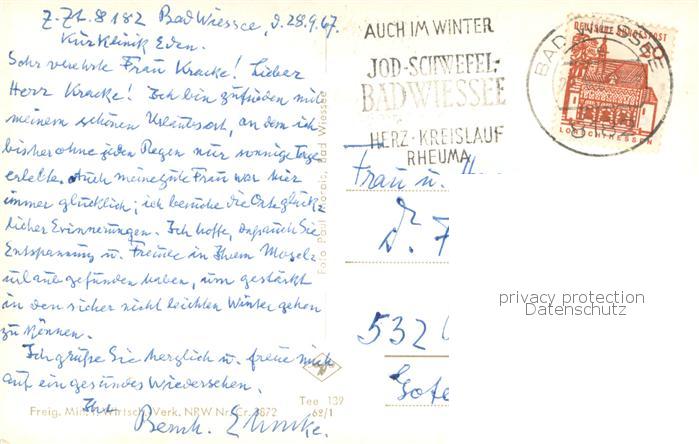 z. Zt. 8182 Bad Wiessee, d. 28.9.67.
Kurklinik Eden.
Sehr verehrte Frau Kracke! Lieber
Herr Kracke! Ich bin zufrieden mit
meinem schönen Urlaubsort, an dem ich
bisher ohne jeden Regen nur sonnige Tage
erlebte. Auch meine gute Frau war hier
immer glücklich; ich besuche die Orte glück-
licher Erinnerungen. Ich hoffe, dass auch Sie
Entspannung u. Freude in Ihrem Mosel-
urlaub gefunden haben, um gestärkt
in den sicher nicht leichten Winter gehen
zu können.
Ich grüße Sie herzlich u. freue mich
auf ein gesundes Wiedersehen.
Ihr
Bernh.
Freig. Min. f. Wirtsch. Verk. NRW Nr. Cr. 3872
Tee 139
62/1
Foto Paul Bad Wiessee
AUCH IM WINTER
JOD-SCHWEFEL-
BAD WIESSEE
HERZ-KREISLAUF
RHEUMA
BAD WIESSEE
DEUTSCHE BUNDESPOST
LORSCH/HESSEN
Frau u. H
Dr. F
532
Gote
privacy protection
Datenschutz